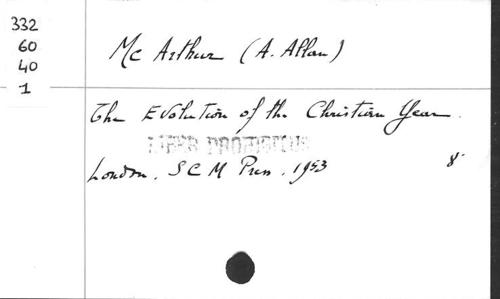 332
60
40
1
Mc Arthur (A. Allan)
The Evolution of the Christian Year.
LIBER PROHIBITUS
London. S C M Press. 1953 8°